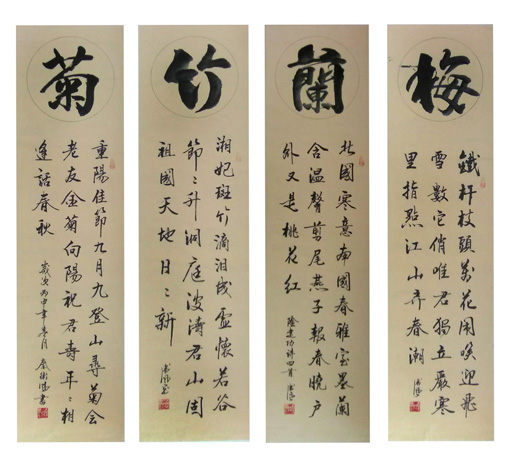 梅
鐵杆枝頭萬花開喚迎飛
雪數它俏唯君獨立嚴寒
里指點江山弄春潮
蘭
北國寒意南國春雅室墨蘭
含温馨剪尾燕子報春曉户
外又是桃花紅
建功詩四首
竹
湘妃斑竹滴泪成虛懷若谷
節々升洞庭波濤君山固
祖國天地日々新
菊
重陽佳節九月九登山尋菊会
老友金菊向陽祝君壽年々相
逢話春秋
歲次丙申年 月 書